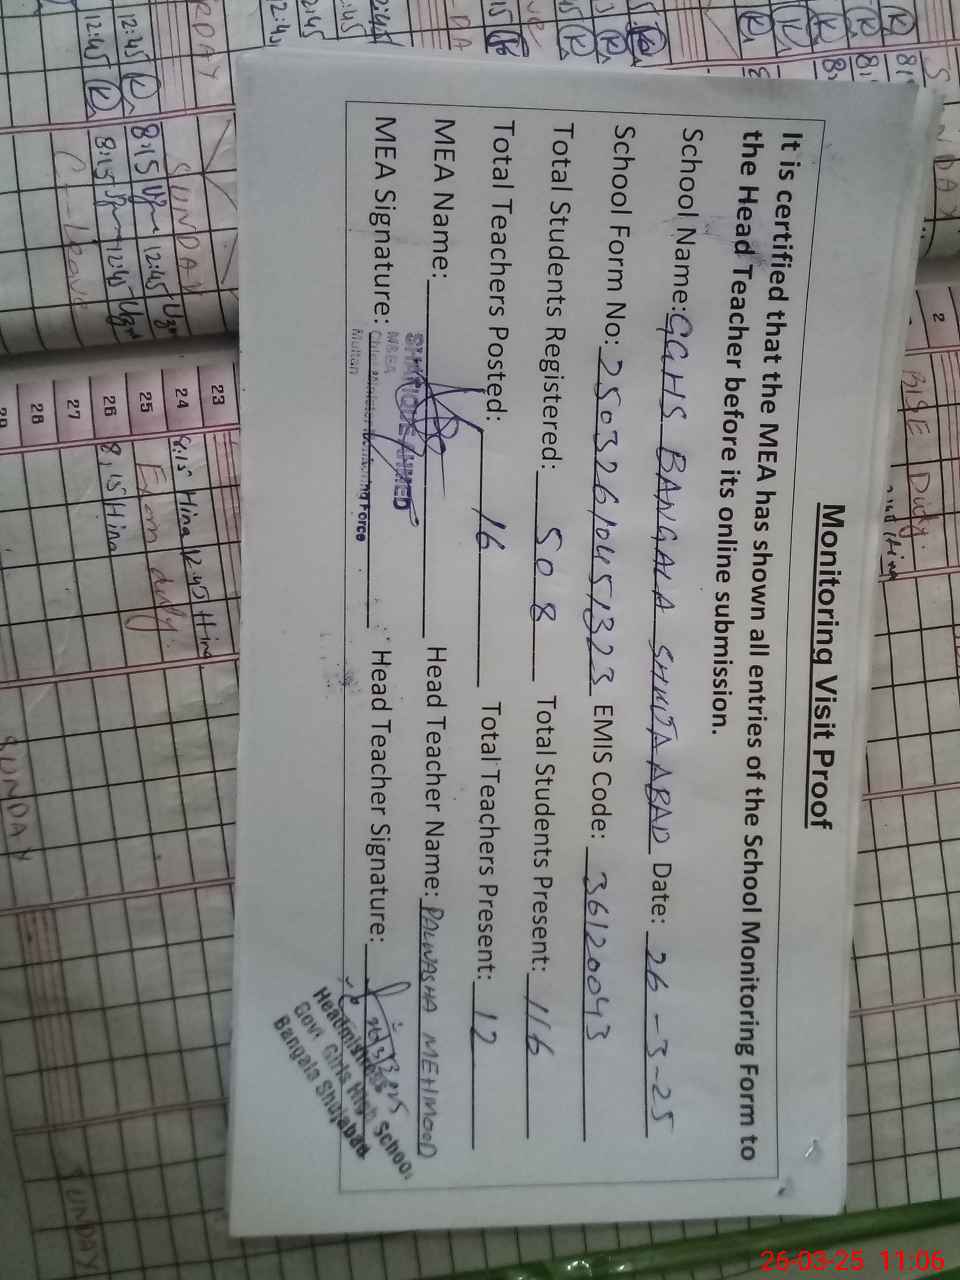 Monitoring Visit Proof
It is certified that the MEA has shown all entries of the School Monitoring Form to
the Head Teacher before its online submission.
School Name: GGHS BANGALA SHUJAABAD Date: 26-3-25
School Form No: 25032610451323 EMIS Code: 36120043
Total Students Registered: 508 Total Students Present: 116
Total Teachers Posted: 16 Total Teachers Present: 12
MEA Name: Head Teacher Name: PALWASHA MEHMOOD
MEA Signature: Head Teacher Signature:
AHMED
M&EA
Chief Minister Monitoring Force
Multan
26/3/2025
Headmistress
Govt Girls High School
Bangala Shujabad
SUNDAY
12:45
12:45 8:15 12:45
8:15 12:45
leave
SUNDAY
2 BISE Duty.
23
24 8:15 Hina 12:45 Hina
25 Exam duty.
26 8:15 Hina
27
28
29
SUNDAY
SUNDAY
26-03-25 11:06